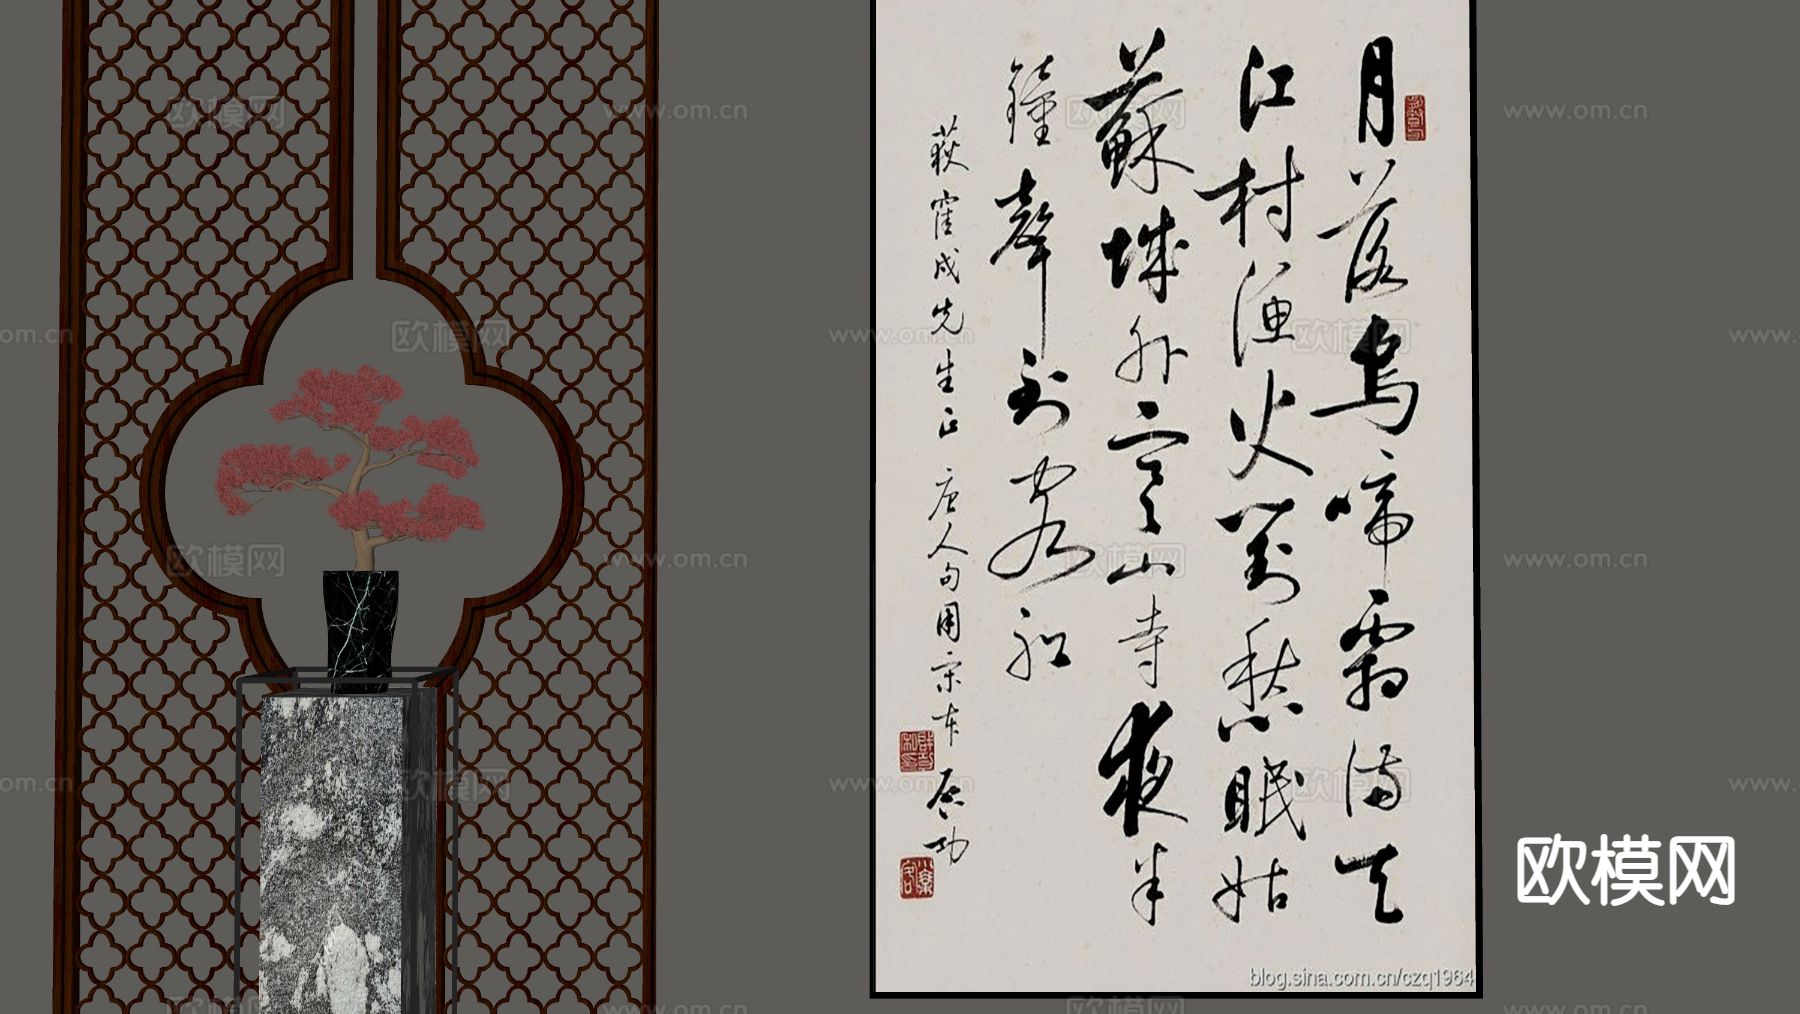 月落烏啼霜滿天
江村漁火對愁眠姑
蘇城外寒山寺夜半
鐘聲到客船
荻成先生正 唐人句用宋本 啟功
blog.sina.com.cn/czq1964
欧模网
欧模网
www.om.cn